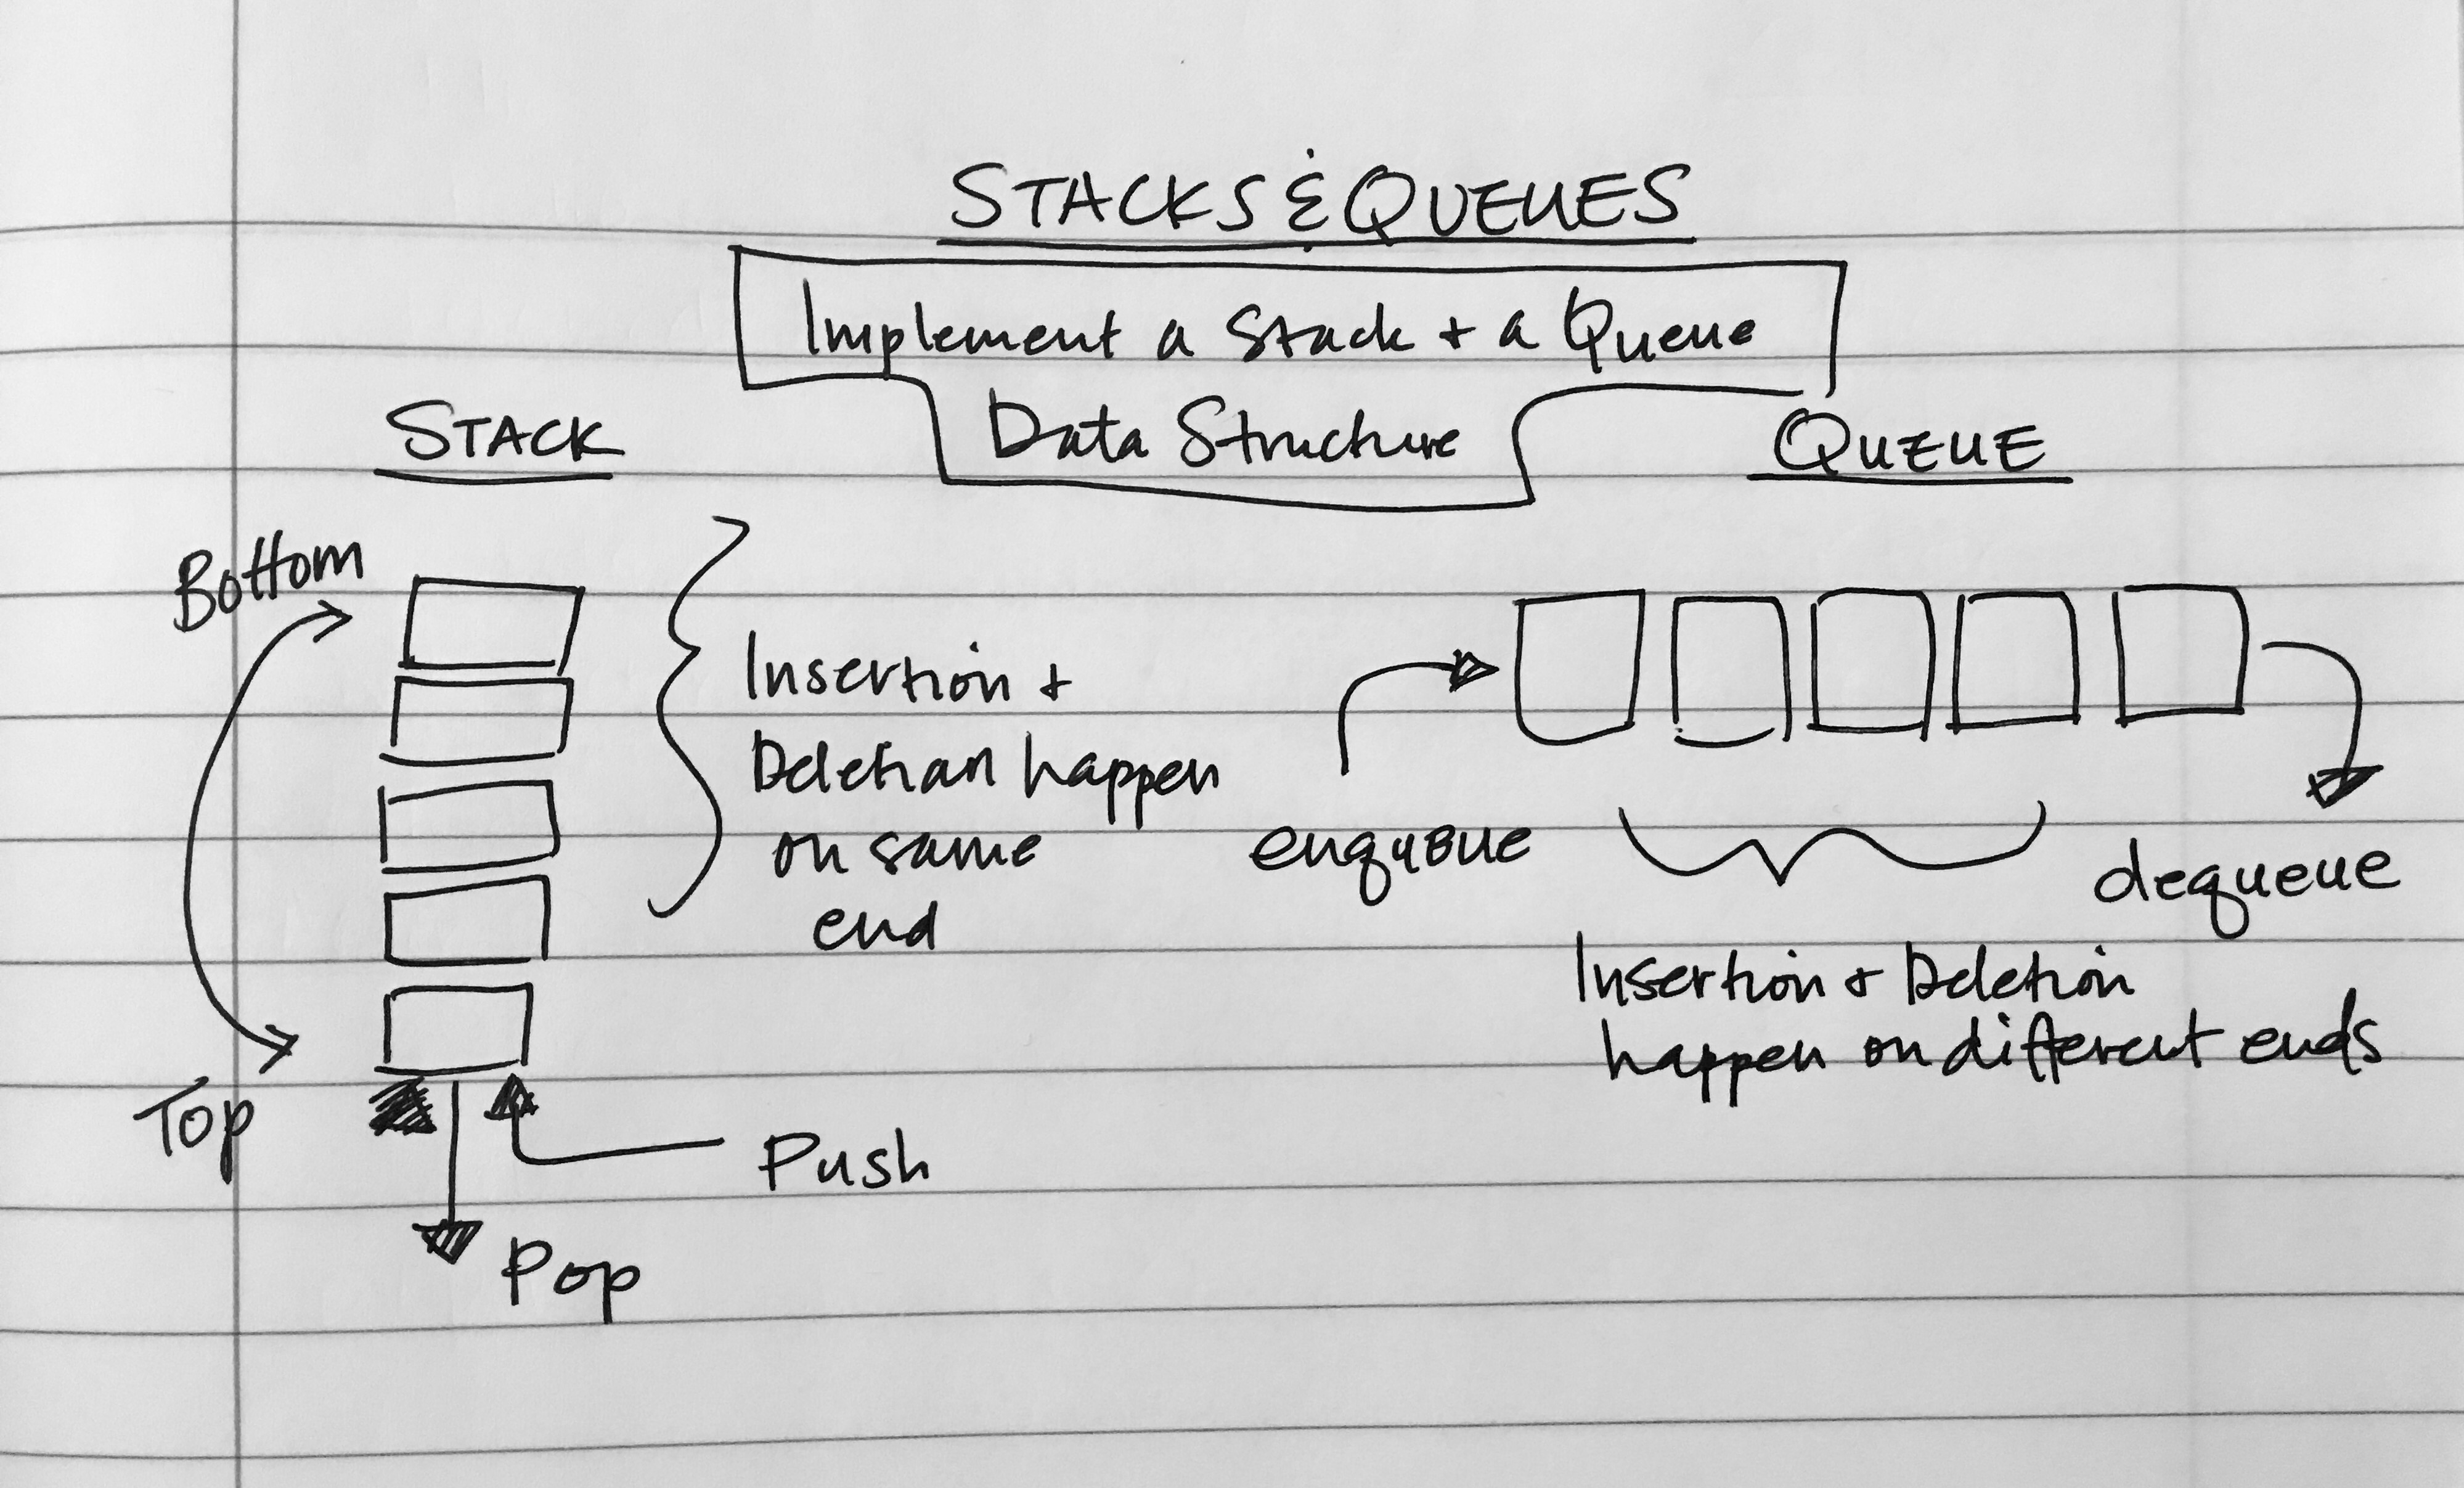 STACKS & QUEUES
Implement a Stack + a Queue
Data Structure
STACK
Bottom
Insertion +
Deletion happen
on same
end
Top
Push
Pop
QUEUE
enqueue
dequeue
Insertion + Deletion
happen on different ends